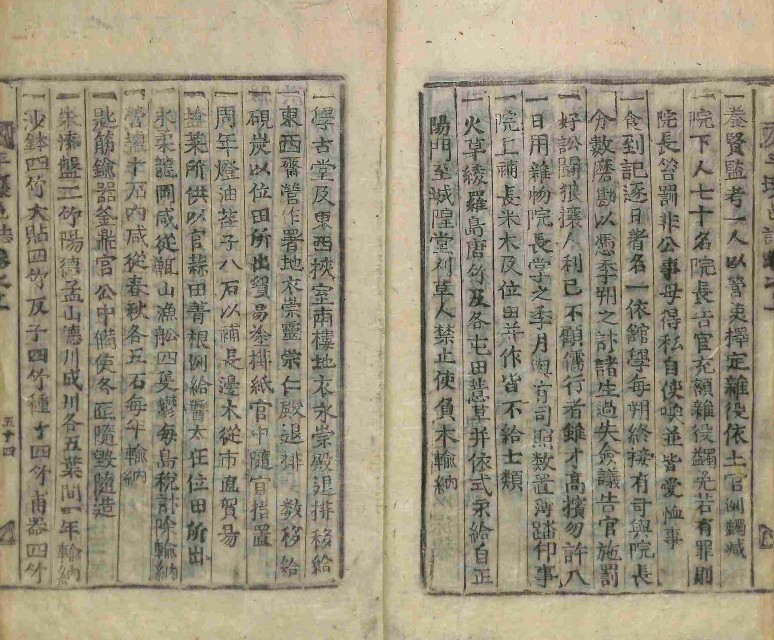 一養賢監考一人以營吏擇定雜役依土官例蠲減
一院下人七十名院長告官充額雜役蠲免若有罪則
院長笞罰非公事毋得私自使喚並皆愛恤事
一食到記逐日着名一依館學每朔終掌有司與院長
分數磨勘以憑季朔之計諸生過失僉議告官施罰
一好訟鬪狠讓人利己不顧儒行者雖才高擯勿許入
一日用雜物院長掌之季月與有司照數置簿踏印事
一院上補長米木及位田井作皆不給士類
一火草綾羅島唐竹及各屯田蒿草并依式永給自正
陽門至城隍堂刈草人禁止使負木輸納
一學古堂及東西挾室南樓地衣永崇殿退排移給
東西齋營作署地衣崇靈崇仁殿退排 數移給
一硯炭以位田所出貿易塗排紙官中隨宜措置
一周年燈油荏子八石以補長邊木從市直貿易
一鹽菜所供以官蒜田菁根例給醬太在位田所出
永柔龍岡咸從甑山漁船四隻鬱每島稅計除輸納
一營壇十石內咸從春秋各五石每年輸納
一匙筯鍮器釜鼎官公中備使冬匠隨毀隨造
一朱漆盤二竹陽德孟山德川成川各五葉間一年輸納
一沙鉢四竹大貼四竹及子四竹種子四竹甫器四竹
五十四